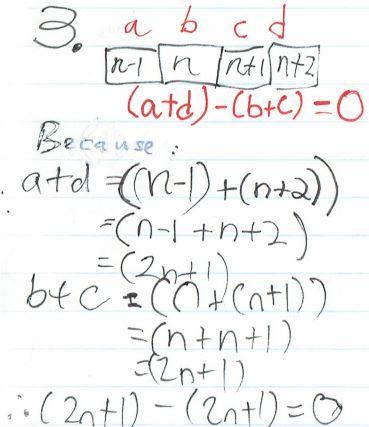 3. a b c d
n-1 n n+1 n+2
(a+d)-(b+c)=0
Because:
a+d =((n-1)+(n+2))
=(n-1+n+2)
=(2n+1)
b+c = (n+(n+1))
=(n+n+1)
=(2n+1)
∴(2n+1)-(2n+1)=0